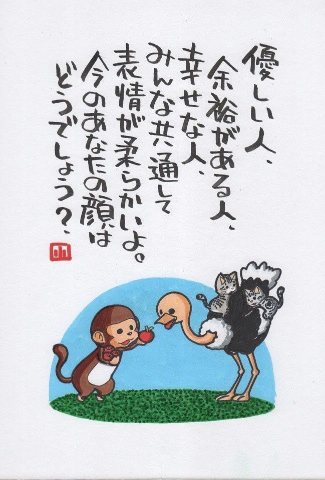 優しい人、
余裕がある人、
幸せな人、
みんな共通して
表情が柔らかいよ。
今のあなたの顔は
どうでしょう？